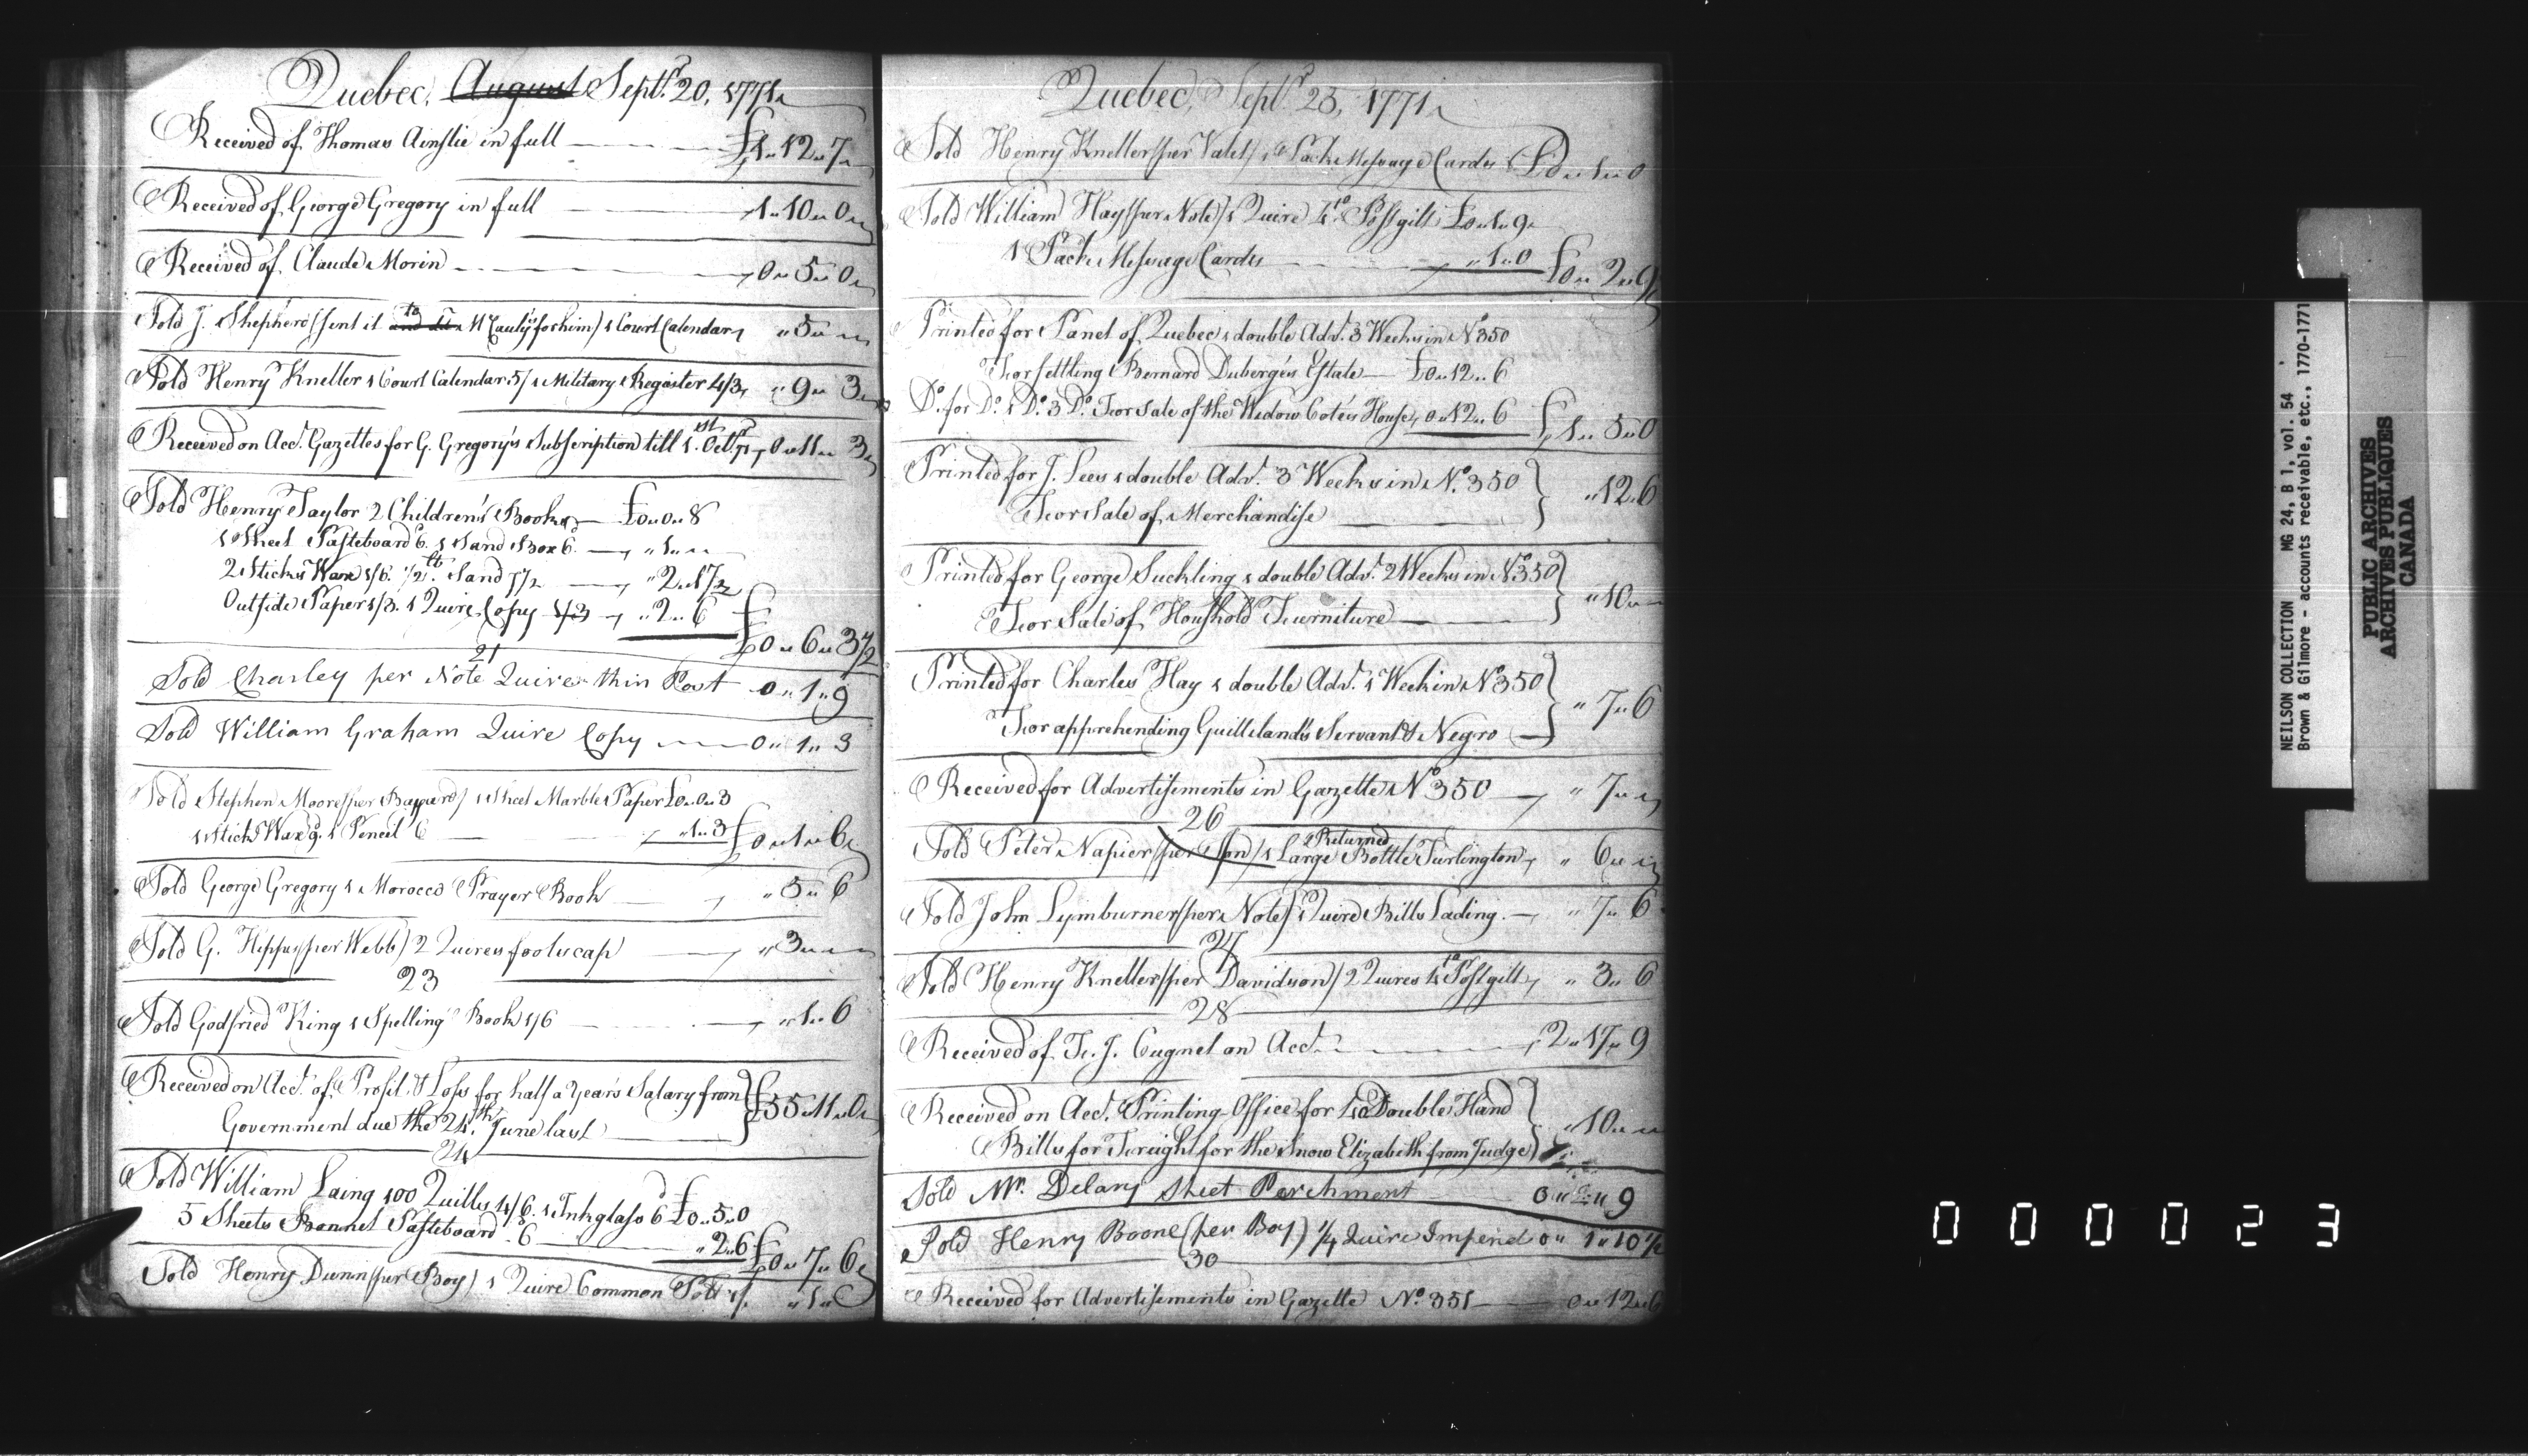 Quebec, August Septr. 20, 1771
Received of Thomas Ainslie in full £1..12..7
Received of George Gregory in full 1..10..0
Received of Claude Morin 0..5..0
Sold J. Shepherd (sent it to McCauly's for him) 1 Court Calendar "5"
Sold Henry Kneller 1 Court Calendar 5/ 1 Military Register 4/3 "9..3
Received on Acct. Gazettes for G. Gregory's Subscription till 1st. Octr. 71 0..11..3
Sold Henry Taylor 2 Children's Books £0..0..8
1 Sheet Pasteboard 6. 1 Sand Box 6. "1""
2 Sticks Wax 1/6. 1/2 lb. Sand 7½ "2..1½
Outside Paper 1/3. 1 Quire Copy 1/3 "2..6
£0..6..3½
21
Sold Charley per Note Quire thin Post 0..1..9
Sold William Graham Quire Copy 0..1..3
Sold Stephen Moore (per Bayard) 1 Sheet Marble Paper £0..0..3
1 Stick Wax 9. 1 Pencil 6 "1..3 £0..1..6
Sold George Gregory 1 Morocco Prayer Book "5..6
Sold G. Hipps (per Webb) 2 Quires foolscap "3""
23
Sold Godfried King 1 Spelling Book 1/6 "1..6
Received on Acct. of Profit & Loss for half a Year's Salary from
Government due the 24th. June last £55..11..0
24
Sold William Laing 100 Quills 4/6. 1 Inkglass 6 £0..5..0
5 Sheets Bonnet Pasteboard 6 "2..6 £0..7..6
Sold Henry Dunn (per Boy) 1 Quire Common Pott 1/. "1..0
Quebec, Septr. 25, 1771
Sold Henry Kneller (per Valet) 1 Pack Message Cards £0..1..0
Sold William Hay (per Note) 1 Quire 4to Post gilt £0..1..9
1 Pack Message Cards "1..0 £0..2..9
Printed for Panet of Quebec 1 double Adv. 3 Weeks in No. 350
For settling Bernard Duberge's Estate £0..12..6
Do. for Do. 1 Do. 3 Do. For Sale of the Widow Coté's House, 0..12..6 £1..5..0
Printed for J. Lees 1 double Adv. 3 Weeks in No. 350
For Sale of Merchandise "12..6
Printed for George Suckling 1 double Adv. 2 Weeks in No. 350
For Sale of Houshold Furniture "10""
Printed for Charles Hay 1 double Adv. 1 Week in No. 350
For apprehending Guilleland's Servant & Negro "7..6
Received for Advertisements in Gazette No. 350 "7""
26
Returned
Sold Peter Napier (per Son) 1 Large Bottle Turlington "6""
Sold John Lymburner (per Note) 1 Quire Bills Lading. "7..6
27
Sold Henry Kneller (per Davidson) 2 Quires 4to Post gilt "3..6
28
Received of F. J. Cugnet on Acct. 2..17..9
Received on Acct. Printing-Office for 40 Double Hand
Bills for Freight for the Snow Elizabeth from Judge "10""
Sold Mr. Delany Sheet Parchment 0..2..9
Sold Henry Boone (per Boy) 1/4 Quire Imperial 0..1..10½
30
Received for Advertisements in Gazette No. 351 0..12..6
0 0 0 0 2 3
NEILSON COLLECTION MG 24, B 1, vol. 54
Brown & Gilmore - accounts receivable, etc., 1770-1771
PUBLIC ARCHIVES
ARCHIVES PUBLIQUES
CANADA